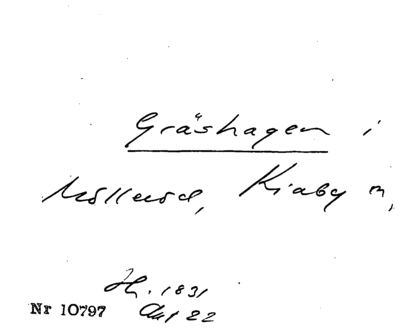 Gräshagen i
Mölleröd, Kiaby sn,
Hs. 1831
Akt 22
Nr 10797